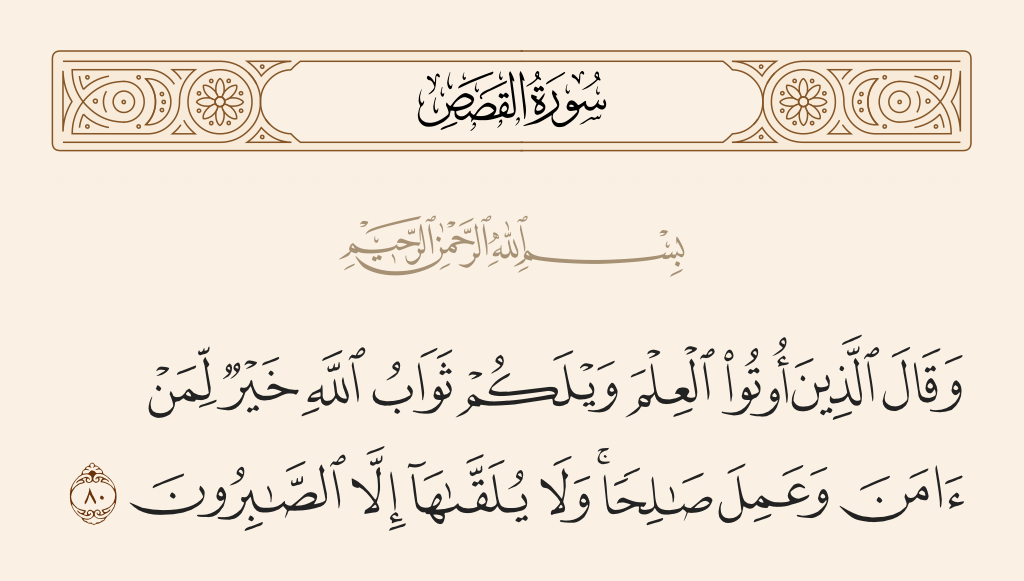 سُورَةُ القَصَصِ
بِسْمِ ٱللَّهِ ٱلرَّحْمَٰنِ ٱلرَّحِيمِ
وَقَالَ ٱلَّذِينَ أُوتُوا۟ ٱلْعِلْمَ وَيْلَكُمْ ثَوَابُ ٱللَّهِ خَيْرٌ لِّمَنْ
ءَامَنَ وَعَمِلَ صَـٰلِحًا ۚ وَلَا يُلَقَّىٰهَآ إِلَّا ٱلصَّـٰبِرُونَ ٨٠